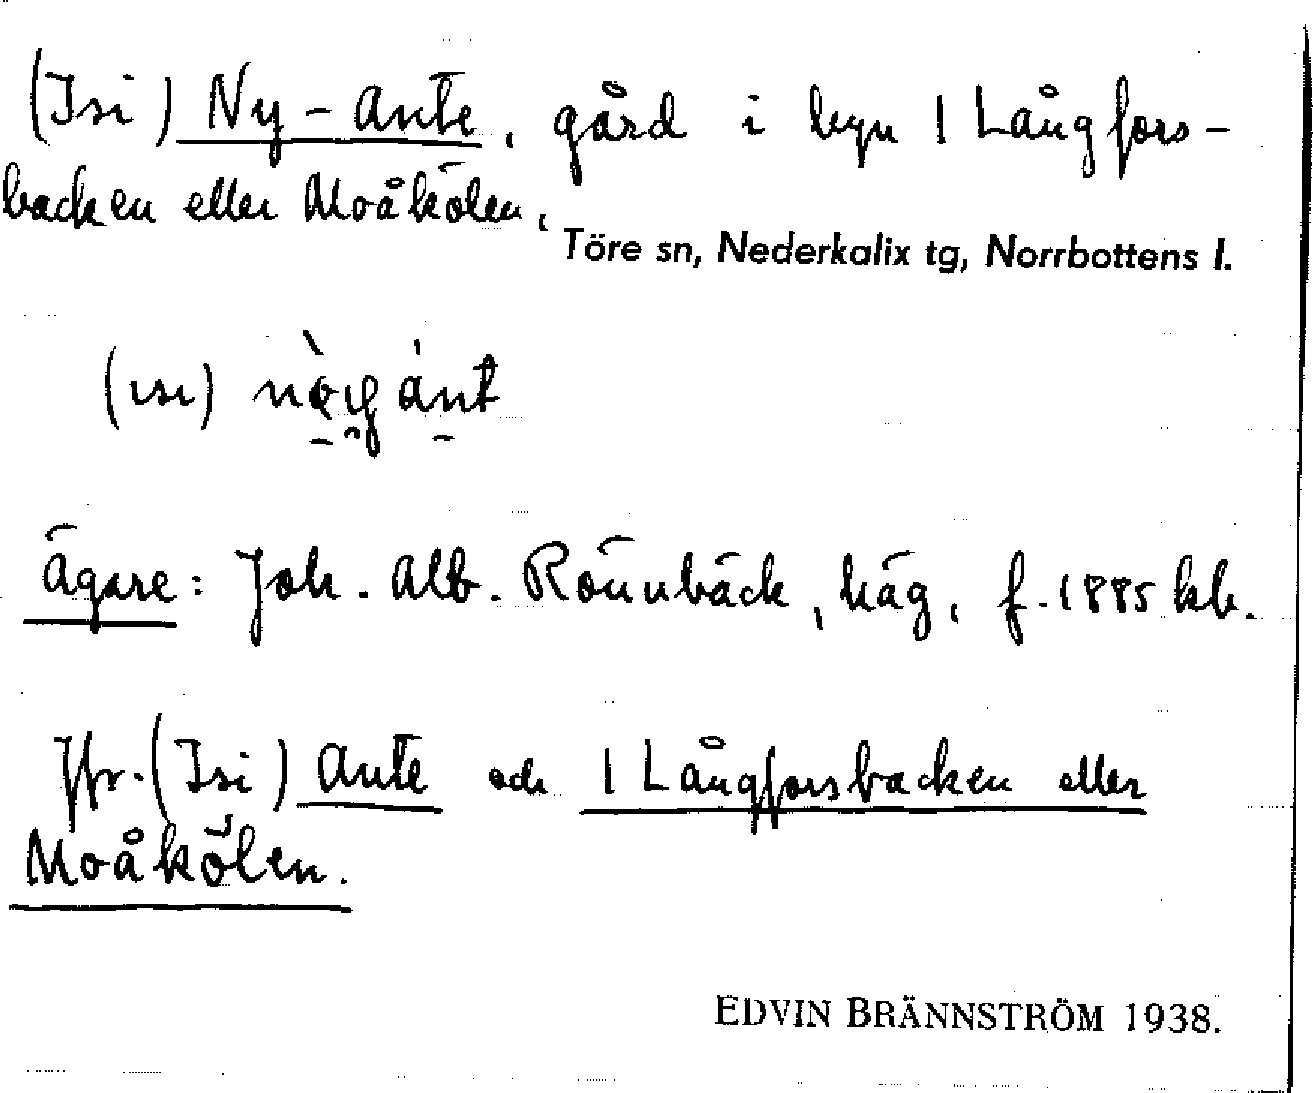 (Isi) Ny-Ante, gård i byn 1 Långfors-
backen eller Moåkölen,
Töre sn, Nederkalix tg, Norrbottens l.
(ısı)
Ägare: Joh. Alb. Rönnbäck, häg, f. 1885 kb.
Jfr. (Isi) Ante och 1 Långforsbacken eller
Moåkölen.
EDVIN BRÄNNSTRÖM 1938.